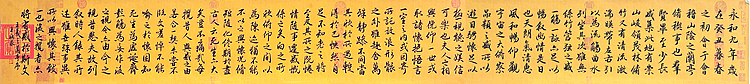 永和九年歲
在癸丑暮春
之初會于會
稽山陰之蘭亭
脩稧事也群
賢畢至少長
咸集此地有崇
山峻領茂林脩
竹又有清流激
湍映帶左右引
以為流觴曲水
列坐其次雖無
絲竹管弦之盛
一觴一詠亦足以
暢敘幽情是日
也天朗氣清惠
風和暢仰觀
宇宙之大俯察
品類之盛所以
遊目騁懷足以
極視聽之娛信
可樂也夫人之相
與俯仰一世或
取諸懷抱悟言
一室之內或因寄
所託放浪形骸
之外雖趣舍萬
殊靜躁不同當
其欣於所遇暫
得於己快然自
足不知老之將
至及其所之既
惓情隨事遷感慨
係之矣向之所
欣俛仰之間以
為陳跡猶不能不
以之興懷況脩
短隨化終期於盡
古人云死生亦大
矣豈不痛哉每
攬昔人興感之由
若合一契未嘗不
臨文嗟悼不能
喻之於懷固知
一死生為虛誕齊
彭殤為妄作後
之視今亦由今之
視昔悲夫故列
敘時人錄其所
述雖世殊事異
所以興懷其致
一也後之攬者亦
將有感於斯文